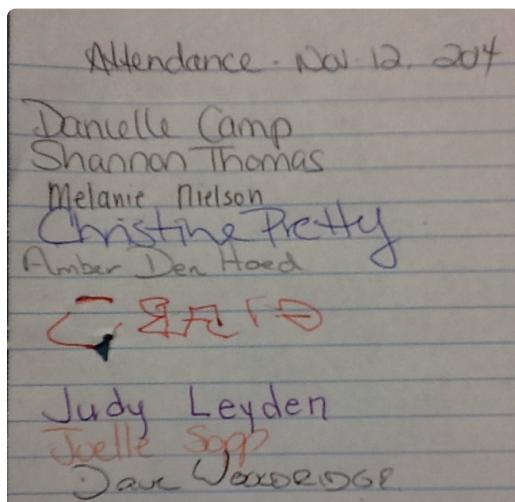 Attendance. Nov. 12. 2014
Danielle Camp
Shannon Thomas
Melanie Nielson
Christine Pretty
Amber Den Hoed
Judy Leyden
Joelle
Dave WOOLDRIDGE